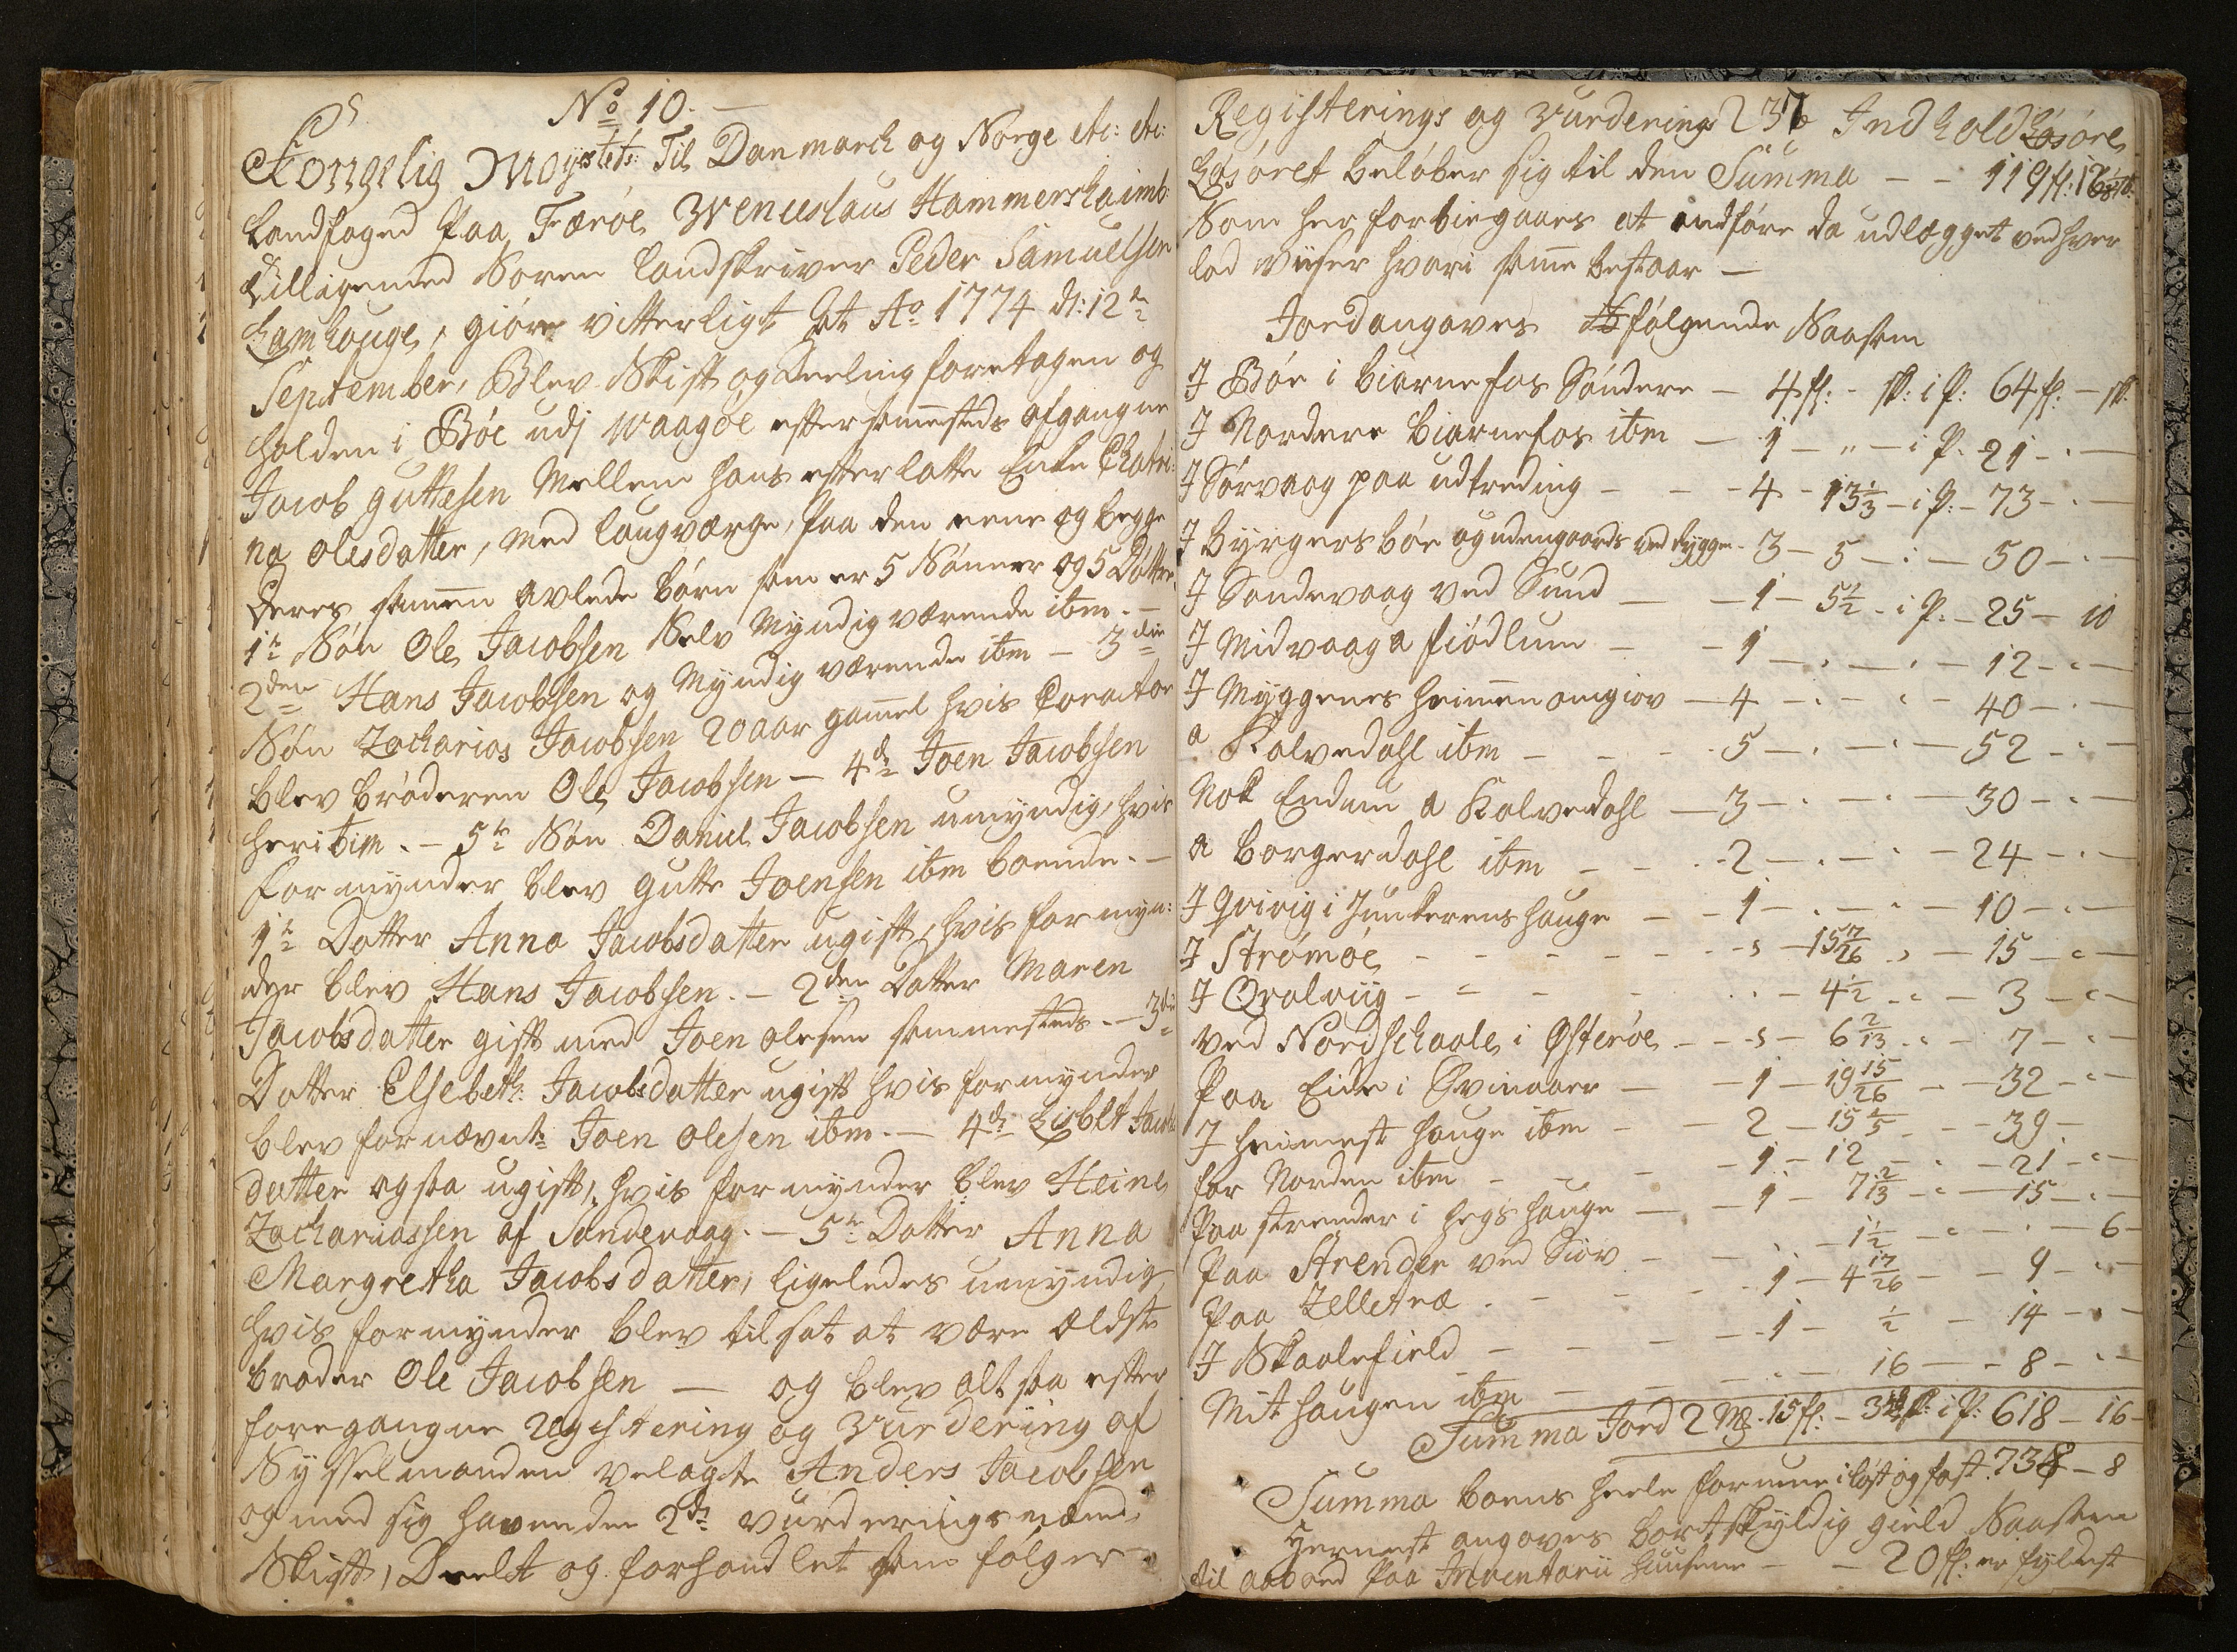 No 10.
Kongelig Mayestets Til Danmarch og Norge etc: etc:
Landfoged Paa Færöe Wenceslaus Hammershaimb
tilligemed Soren Landskriver Peder Samuelsen
Lamhauge, giöre vitterligt At Ao 1774 d: 12te
September, Blev Skift og Deeling foretagen og
holden i Böe udj Waagöe efter sammesteds afgangne
Jacob guttesen Mellem hans efterlatte Enke Chatri:
na Olesdatter, med laugværge, paa den eene og begge
deres sammen avlede börn som er 5 Sönner og 5 Döttre,
1te Sön Ole Jacobsen Selv Myndig værende ibm. —
2den Hans Jacobsen og Myndig værende ibm — 3die
Sön Zacharias Jacobsen 20 aar gammel hvis Corator
blev bröderen Ole Jacobsen — 4de Joen Jacobsen
heri ibim. — 5te Sön Daniel Jacobsen umyndig, hvis
formynder blev gutte Joensen ibm boende. —
1te Datter Anna Jacobsdatter ugift, hvis formyn:
der blev Hans Jacobsen. — 2den Datter Maren
Jacobsdatter gift med Joen Olesen sammesteds. — 3die
Datter Elsebeth: Jacobsdatter ugift hvis formynder
blev fornævnte Joen Olesen ibm. — 4de Lisbet Jacobs
datter ogsaa ugift, hvis formynder blev Heine
Zachariassen af Sandevaag. — 5te Datter Anna
Margretha Jacobsdatter, ligeledes umyndig
hvis formynder blev tilsat at være ældste
broder Ole Jacobsen — og blev altsaa efter
foregangne Registering og Vurdering af
Sysselmanden velagte Anders Jacobsen
og med sig havende 2de vurderingsmænd,
Skift, Deelt og forhandlet som fölger
Registerings og Vurderings 237 Indhold
Lösöret belöber sig til den Summa — — 119 fl: 16
Som her forbiegaaes at indföre da udlægget ved hver
lod viiser hvori samme bestaar —
Jord angaves fölgende Saasom
I Böe i biarnefos Söndere — 4 fl: - sk: i P: 64 fl: — sk:
I Nordere biarnefos ibm — 1 — " — i P. 21 - . —
I Sörvaag paa udtreding — — - 4 - 13 1/3 — i P: - 73 - . —
I Byrgersböe og udengaards ved bygge - 3 — 5 — : — 50 — . —
I Sandevaag ved Sund — — 1 — 5 1/2 - i P: — 25 — 10
I Midvaag a fiödlum — — 1 — . — . — 12 — . —
I Myggenes heimen omgiov — 4 — . — . — 40 — . —
a Kalvedahl ibm — - - 5 — . — . — 52 — . —
Nok Endnu a Kalvedahl — 3 — . — . — 30 — . —
a borgerdahl ibm — - - 2 — . — . — 24 — . —
I Qvivig i Junkerens hauge — - 1 — . — . — 10 — . —
I Strömöe - - - - - - - 15 17/26 - - 15 — . —
I Qvalviig - - - - 4 1/2 - . — 3 — . —
ved Nordschaale i Österöe - - - 6 2/13 - . - 7 — . —
Paa Eide i Svinaaer — - 1 — 19 15/26 — 32 — . —
I heimest hauge ibm — - 2 — 15 4/5 - - 39 —
for Norden ibm - - - 1 — 12 - . - 21 - . —
Paa strender i hegshauge — — 1 — 7 2/13 — . — 15 — . —
Paa Strender ved Siov — — . — 1 1/2 — . — . — 6 —
Paa Zelletræ . - - - - 1 — 4 17/26 — — 9 — . —
I Skaalefield — — — 1 — 1/2 — 14 — . —
Mithaugen ibm — — . — 16 — - 8 — . —
Summa Jord 2 Mk. 15 fl: - 3 i P: 618 — 16 —
Summa boens heele formue i löst og fast. 738 — 8
Hernest angaves bortskyldig gield Saasom
til aaboed Paa Inventarii huusene — — 20 fl: er fyldest